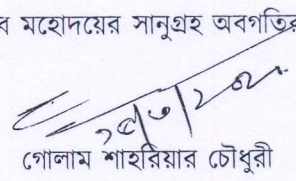 ব মহোদয়ের সানুগ্রহ অবগতির
গোলাম শাহরিয়ার চৌধুরী